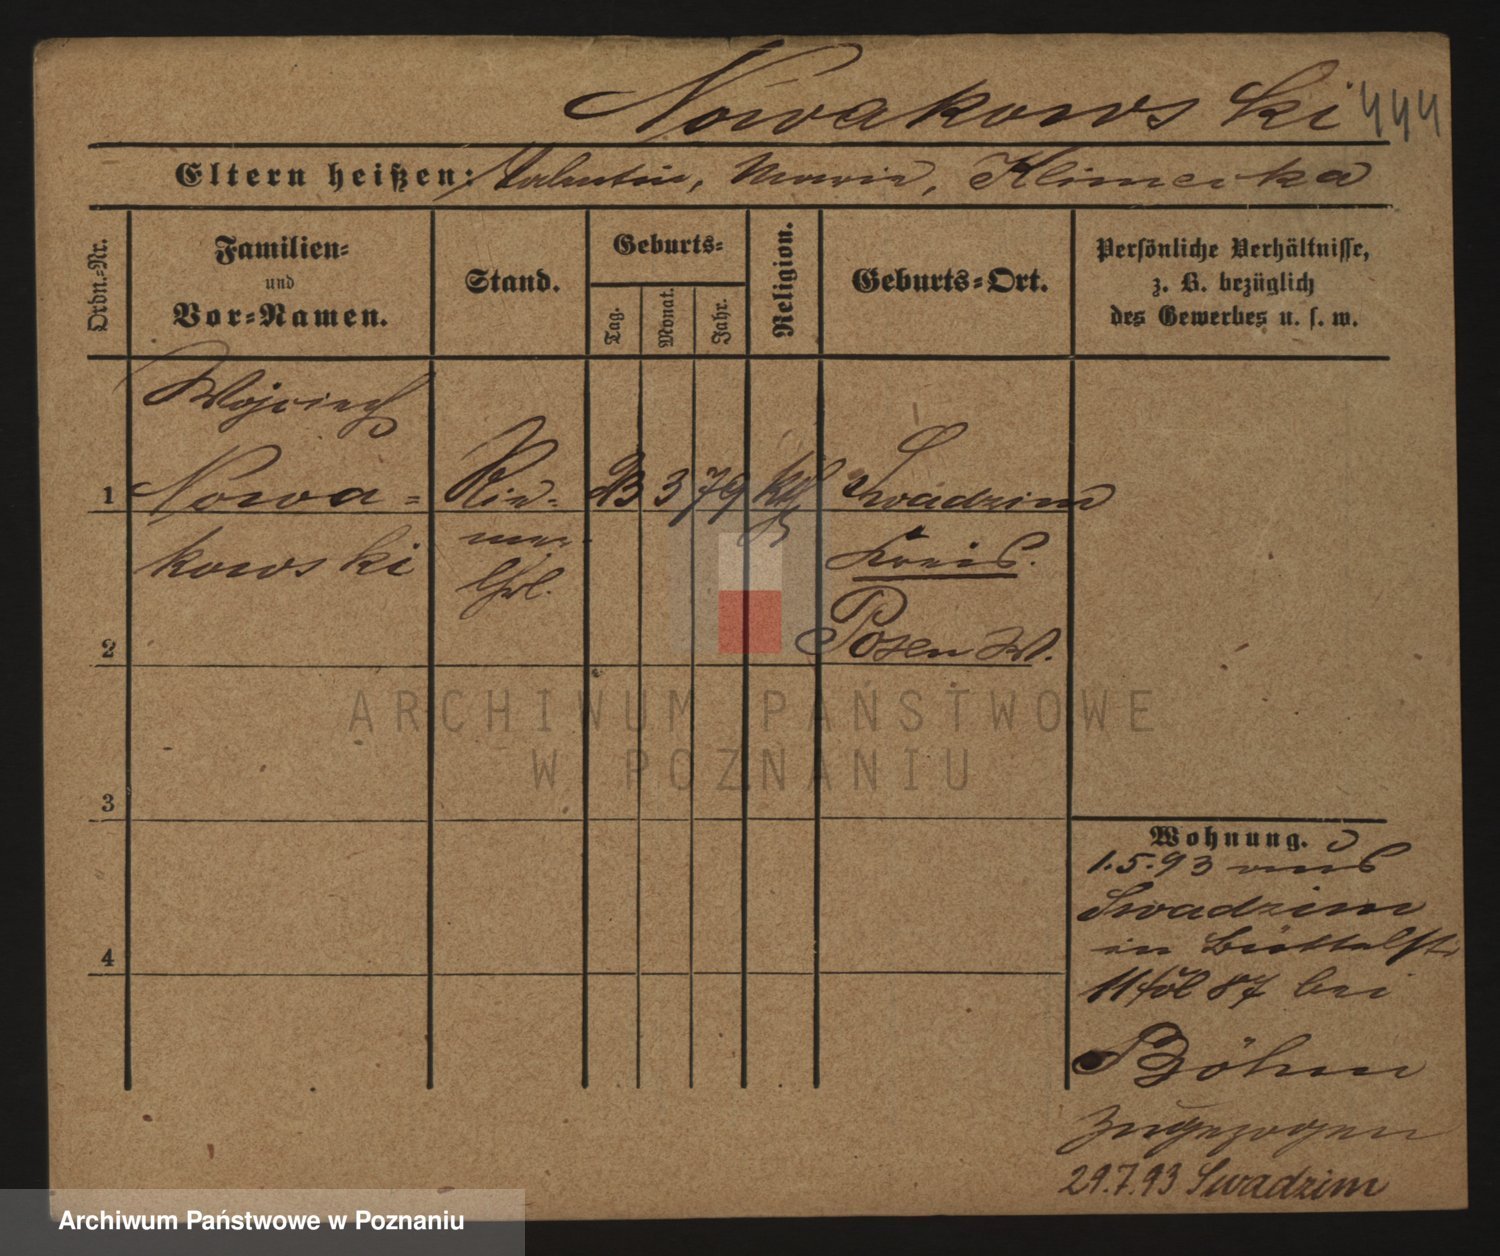 Nowakowski 444
Eltern heißen: Valentin, Maria, Klimecka
Ordn.-Nr.
Familien-
und
Vor-Namen.
Stand.
Geburts-
Tag.
Monat.
Jahr.
Religion.
Geburts-Ort.
Persönliche Verhältnisse,
z. B. bezüglich
des Gewerbes u. s. w.
Wojciech
1 Nowa- Rie- 23 3 79 kth Swadzim
kowski mer- Kreis.
lhrl.
2 Posen W.
ARCHIWUM PAŃSTWOWE
W POZNANIU
3
Wohnung.
1.5.93 aus
Swadzim
in Büttelstr
4
11 87 bei
Böhm
zugezogen
29.7.93 Swadzim
Archiwum Państwowe w Poznaniu